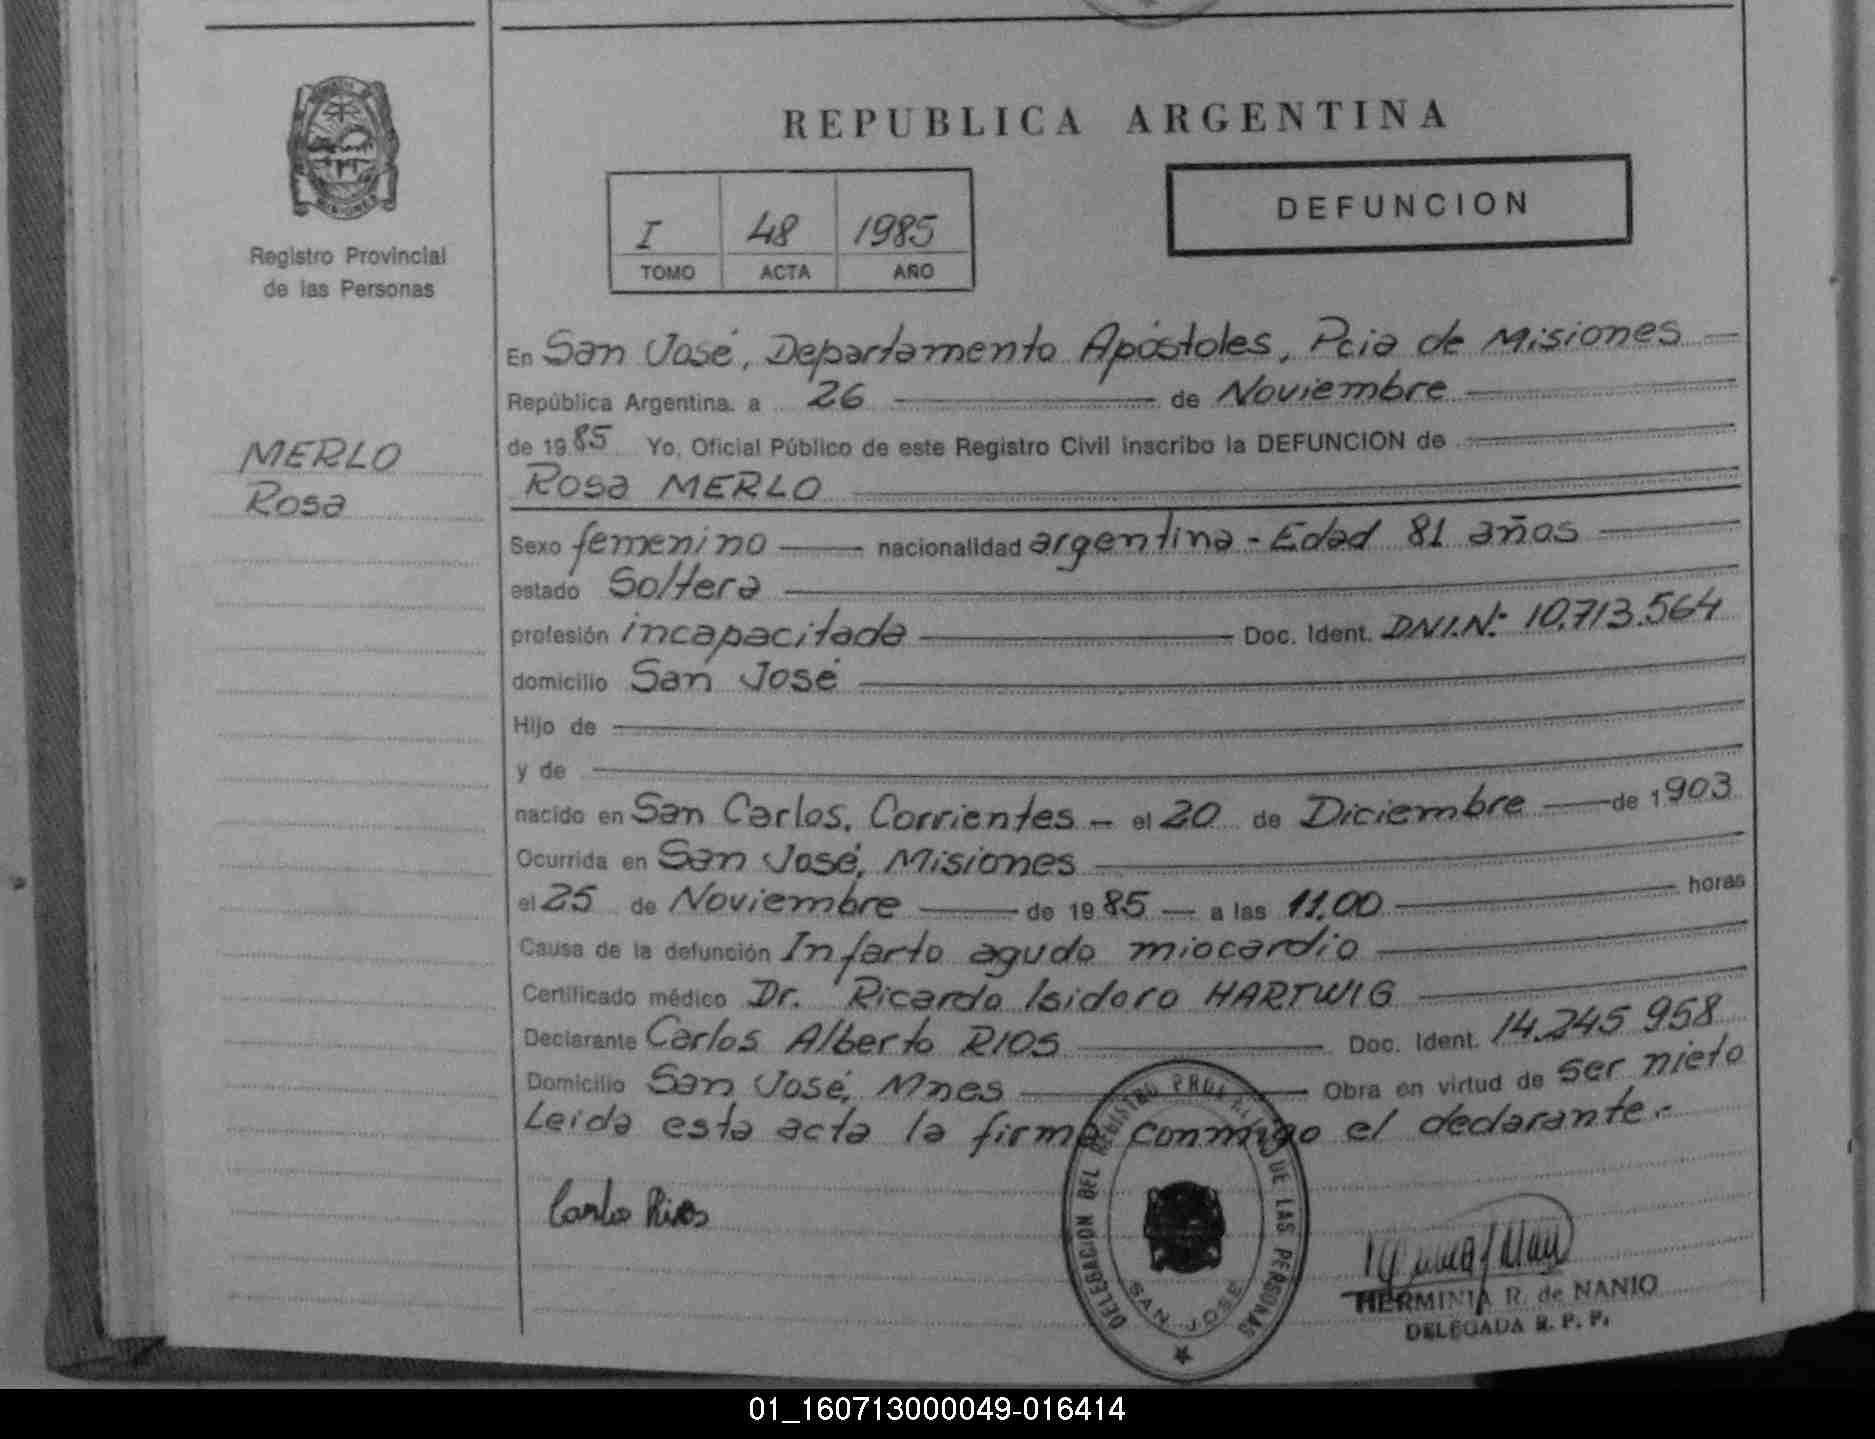 REPUBLICA ARGENTINA
MISIONES
Registro Provincial
de las Personas
I 48 1985
TOMO ACTA AÑO
DEFUNCION
MERLO
Rosa
En San José, Departamento Apóstoles, Pcia de Misiones
República Argentina. a 26 de Noviembre
de 1985 Yo, Oficial Público de este Registro Civil inscribo la DEFUNCION de
Rosa MERLO
Sexo femenino nacionalidad argentina - Edad 81 años
estado Soltera
profesión incapacitada Doc. Ident. DNI.Nº 10.713.564
domicilio San José
Hijo de
y de
nacido en San Carlos, Corrientes - el 20 de Diciembre de 1903
Ocurrida en San José, Misiones
el 25 de Noviembre de 1985 a las 11,00 horas
Causa de la defunción Infarto agudo miocardio
Certificado médico Dr. Ricardo Isidoro HARTWIG
Declarante Carlos Alberto RIOS Doc. Ident. 14.245.958
Domicilio San José, Mnes Obra en virtud de ser nieto
Leida esta acta la firma conmigo el declarante.-
Carlos Rios
DELEGACION DEL REGISTRO PROVINCIAL DE LAS PERSONAS
SAN JOSE
HERMINIA R. de NANIO
DELEGADA R. P. P.
01_160713000049-016414